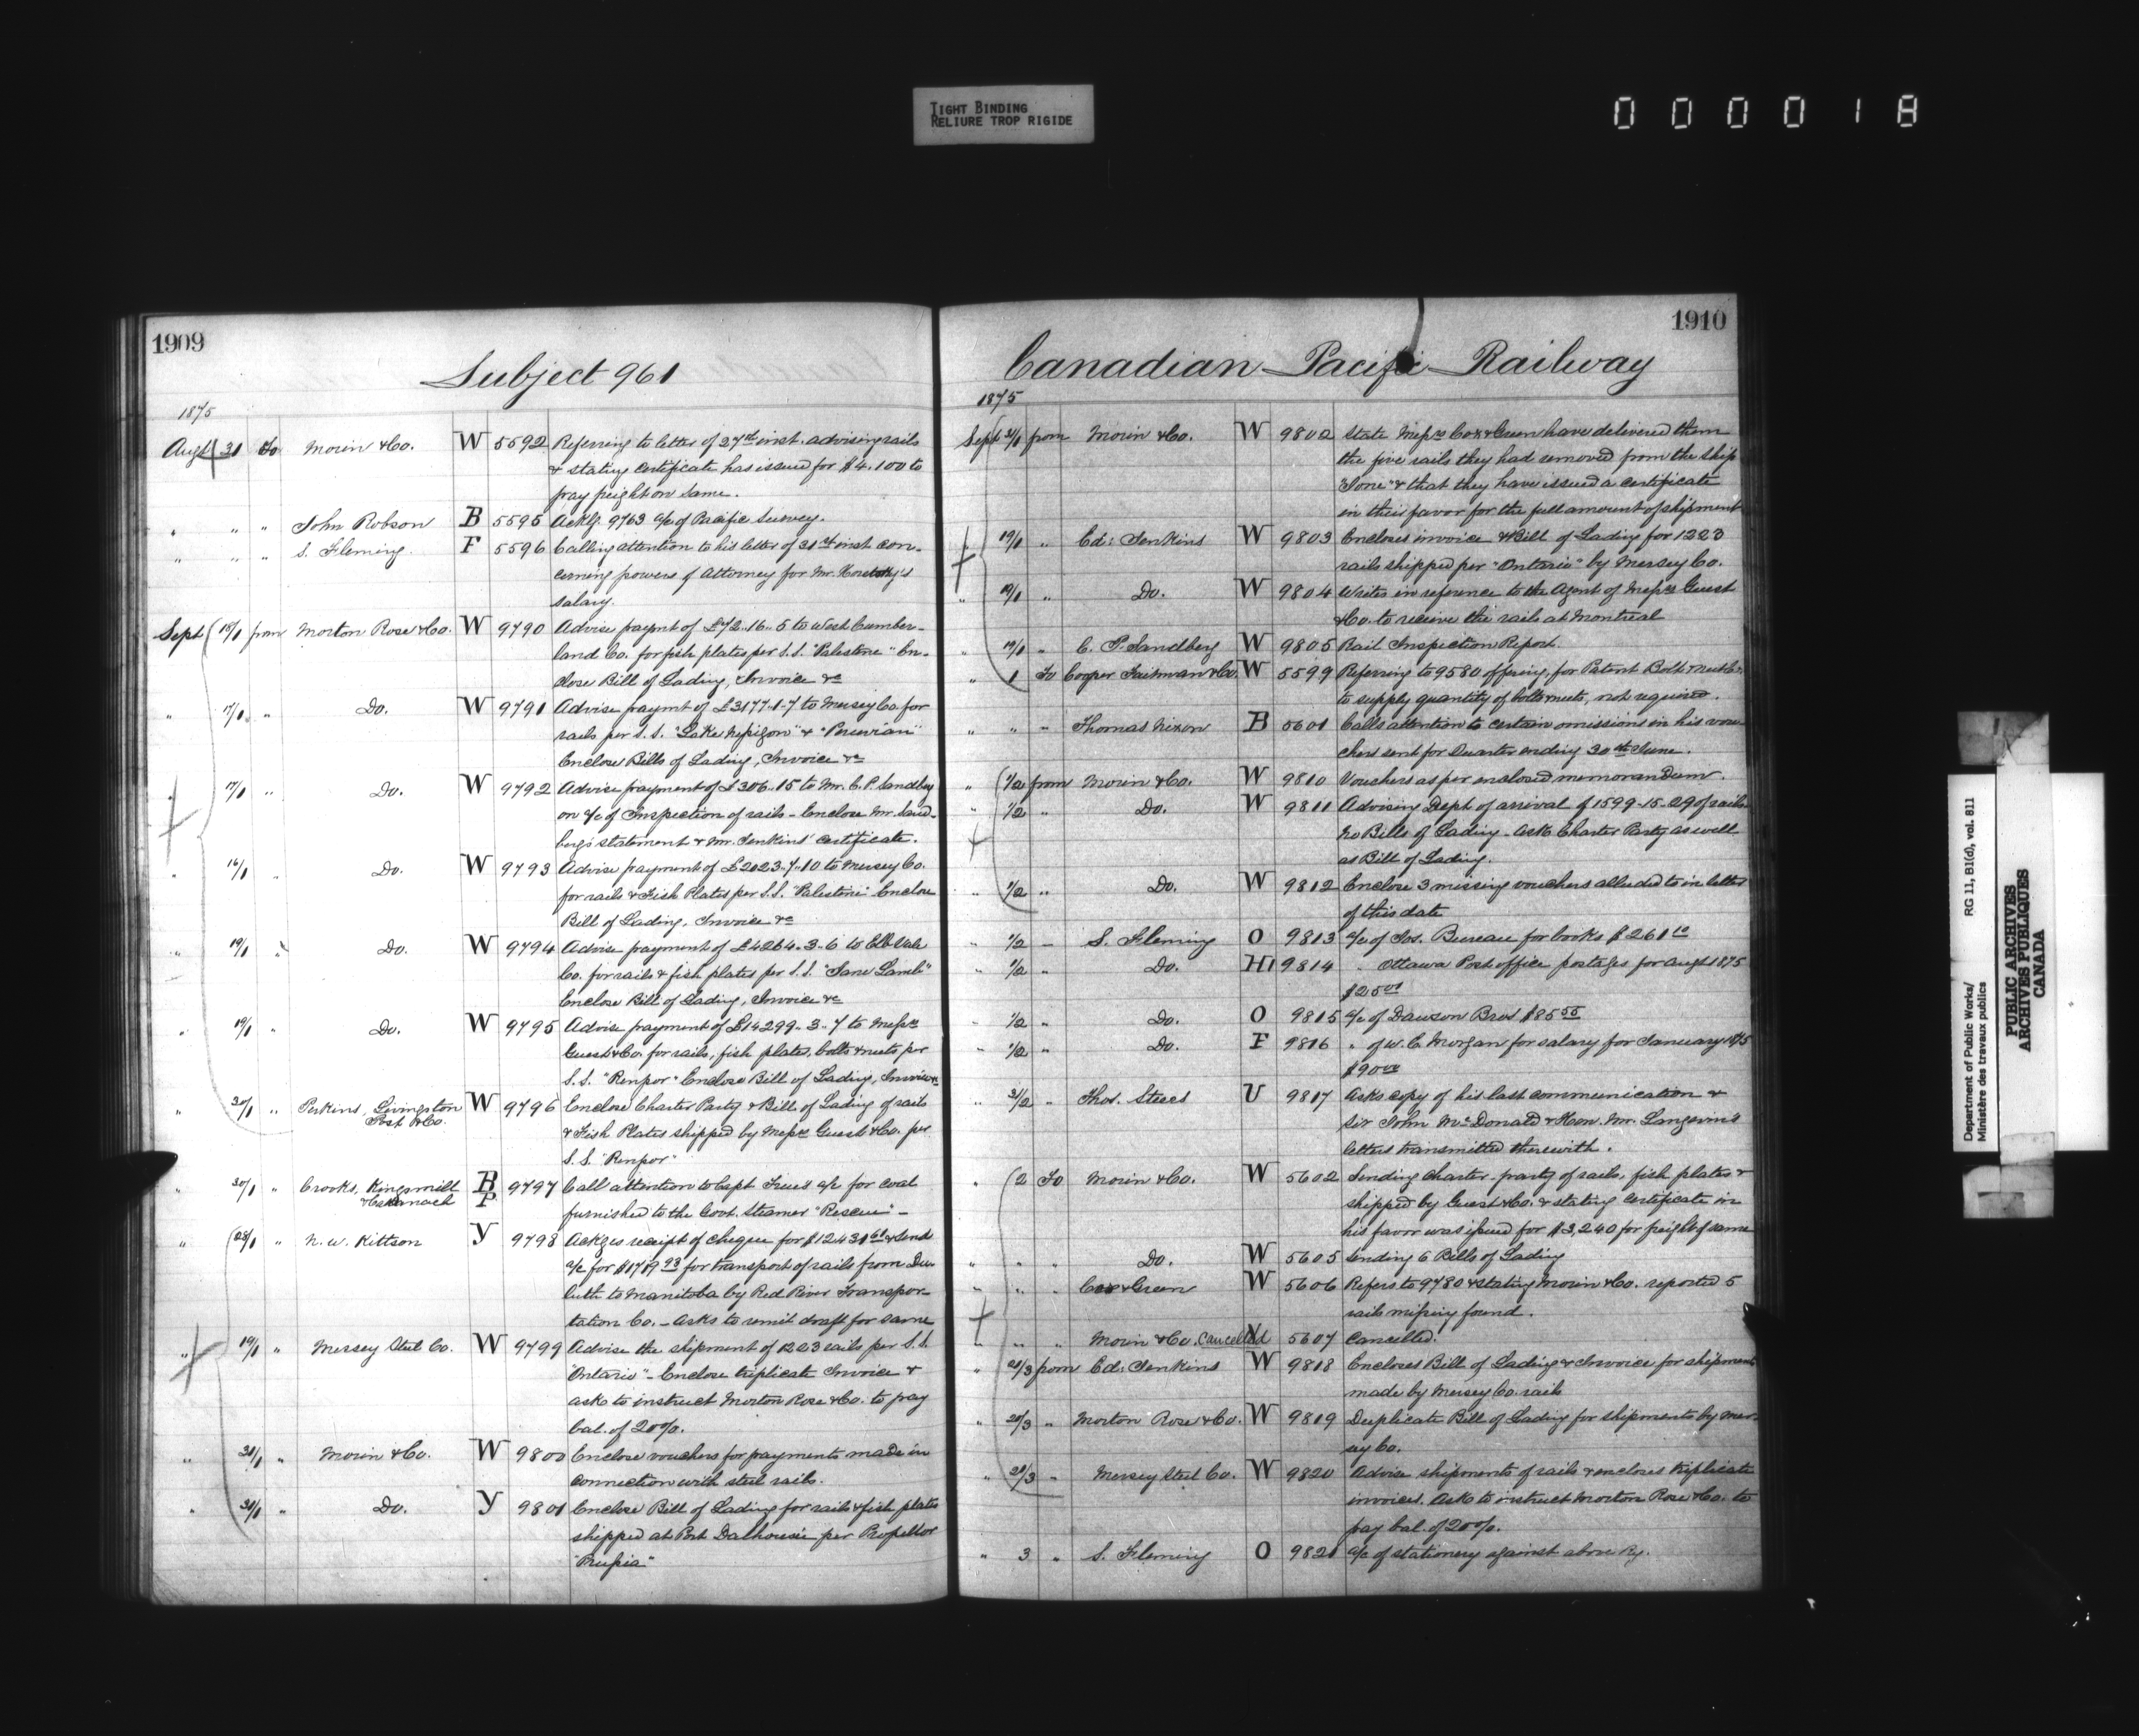 TIGHT BINDING
RELIURE TROP RIGIDE
0 0 0 0 1 8
1909
Subject 961
1875
Augt 31 To Morin & Co. W 5592 Referring to letter of 27th inst. advising rails
& stating certificate has issued for $4,100 to
pay freight on same.
" " " John Robson B 5595 Ackg. 9763 a/c of Pacific Survey.
" " " S. Fleming. F 5596 Calling attention to his letter of 31st inst. con-
cerning powers of Attorney for Mr. Horetzky's
salary.
Sept 18/1 from Morton Rose & Co. W 9790 Advise paymt of £72..16..5 to West Cumber-
land Co. for fish plates per S.S. "Palestine" En-
close Bill of Lading, Invoice &c
" 17/1 " Do. W 9791 Advise paymt of £3177-1-7 to Mersey Co. for
rails per S.S. "Lake Nepigon" & "Peruvian"
Enclose Bills of Lading, Invoice &c
" 17/1 " Do. W 9792 Advise payment of £306..15 to Mr. C.P. Sandberg
on a/c of Inspection of rails - Enclose Mr. Sand-
berg's statement & Mr. Jenkins' certificate.
" 16/1 " Do. W 9793 Advise payment of £2023..7..10 to Mersey Co.
for rails & Fish Plates per S.S. "Palestine" Enclose
Bill of Lading, Invoice &c
" 19/1 " Do. W 9794 Advise payment of £4264..3..6 to Ebb Vale
Co. for rails & fish plates per S.S. "Jane Lamb"
Enclose Bill of Lading, Invoice &c
" 19/1 " Do. W 9795 Advise payment of £14299..3..7 to Messrs
Guest & Co. for rails, fish plates, bolts & nuts per
S.S. "Renpor" Enclose Bill of Lading, Invoice &c
" 30/1 " Perkins, Livingston W 9796 Enclose Charter Party & Bill of Lading of rails
Post & Co.
& Fish Plates shipped by Messrs Guest & Co. per
S.S. "Renpor"
" 30/1 " Crooks, Kingsmill B 9797 Call attention to Capt. Trues a/c for coal
& Cattanach P
furnished to the Govt. Steamer "Rescue" -
" 28/1 " N. W. Kittson Y 9798 Ackges receipt of cheque for $12431 & sends
a/c for $1719 93 for transport of rails from Du-
luth to Manitoba by Red River Transpor-
tation Co. - Asks to remit draft for same
" 19/1 " Mersey Steel Co. W 9799 Advise the shipment of 1223 rails per S.S.
"Ontario" - Enclose triplicate Invoice &
asks to instruct Morton Rose & Co. to pay
bal. of 20%.
" 31/1 " Morin & Co. W 9800 Enclose vouchers for payments made in
connection with steel rails.
" 31/1 " Do. Y 9801 Enclose Bill of Lading for rails & fish plates
shipped at Port Dalhousie per Propellor
"Prussia"
1910
Canadian Pacific Railway
1875
Sept 31/1 from Morin & Co. W 9802 State Messrs Cox & Green have delivered them
the five rails they had removed from the ship
"Ione" & that they have issued a certificate
in their favor for the full amount of shipment
" 19/1 " Ed: Jenkins W 9803 Encloses invoice & Bill of Lading for 1223
rails shipped per "Ontario" by Mersey Co.
" 19/1 " Do. W 9804 Writes in reference to the Agent of Messrs Guest
& Co. to receive the rails at Montreal
" 19/1 " C. P. Sandberg W 9805 Rail Inspection Report.
" 1 To Cooper Fairman & Co. W 5599 Referring to 9580 offering, for Patent Bolt & Nut Co.
to supply quantity of bolts & nuts, not required.
" " " Thomas Nixon B 5601 Calls attention to certain omissions in his vou-
chers sent for Quarter ending 30th June.
" 1/2 from Morin & Co. W 9810 Vouchers as per enclosed memorandum.
" 1/2 " Do. W 9811 Advising Dept of arrival of 1599-15-29 of rails
no Bills of Lading - Ask Charter Party as well
as Bill of Lading.
" 1/2 " Do. W 9812 Enclose 3 missing vouchers alluded to in letter
of this date
" 1/2 " S. Fleming O 9813 a/c of Jos. Bureau for books $261 10
" 1/2 " Do. H1 9814 " Ottawa Post office postages for Augt 1875
$25 01
" 1/2 " Do. O 9815 a/c of Dawson Bros $85 55
" 1/2 " Do. F 9816 " of W. C. Morgan for salary for January 1875
$90 00
" 31/2 " Thos. Steers U 9817 Asks copy of his last communication &
Sir John McDonald & Hon. Mr. Langevin's
letters transmitted therewith.
" 2 To Morin & Co. W 5602 Sending Charter-party of rails, fish plates &
shipped by Guest & Co. & stating certificate in
his favor was issued for $3,240 for freight of same
" " " Do. W 5605 Sending 6 Bills of Lading
" " " Cox & Green W 5606 Refers to 9780 & stating Morin & Co. reported 5
rails missing found.
" " " Morin & Co. Cancelled 5607 Cancelled.
" 21/3 from Ed: Jenkins W 9818 Encloses Bill of Lading & Invoice for shipment
made by Mersey Co. rails
" 20/3 " Morton Rose & Co. W 9819 Duplicate Bill of Lading for shipments by Mer-
sey Co.
" 21/3 " Mersey Steel Co. W 9820 Advise shipments of rails & encloses triplicate
invoices. Ask to instruct Morton Rose & Co. to
pay bal. of 20%.
" 3 " S. Fleming O 9821 a/c of stationery against above Ry.
Department of Public Works/ RG 11, B1(d), vol. 811
Ministère des travaux publics
PUBLIC ARCHIVES
ARCHIVES PUBLIQUES
CANADA